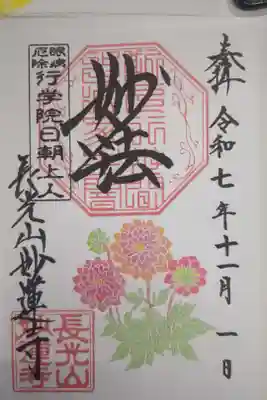 奉拝
令和七年十一月一日
妙法
眼病
厄除
行学院日朝上人
長光山妙蓮寺
長光山
妙蓮寺